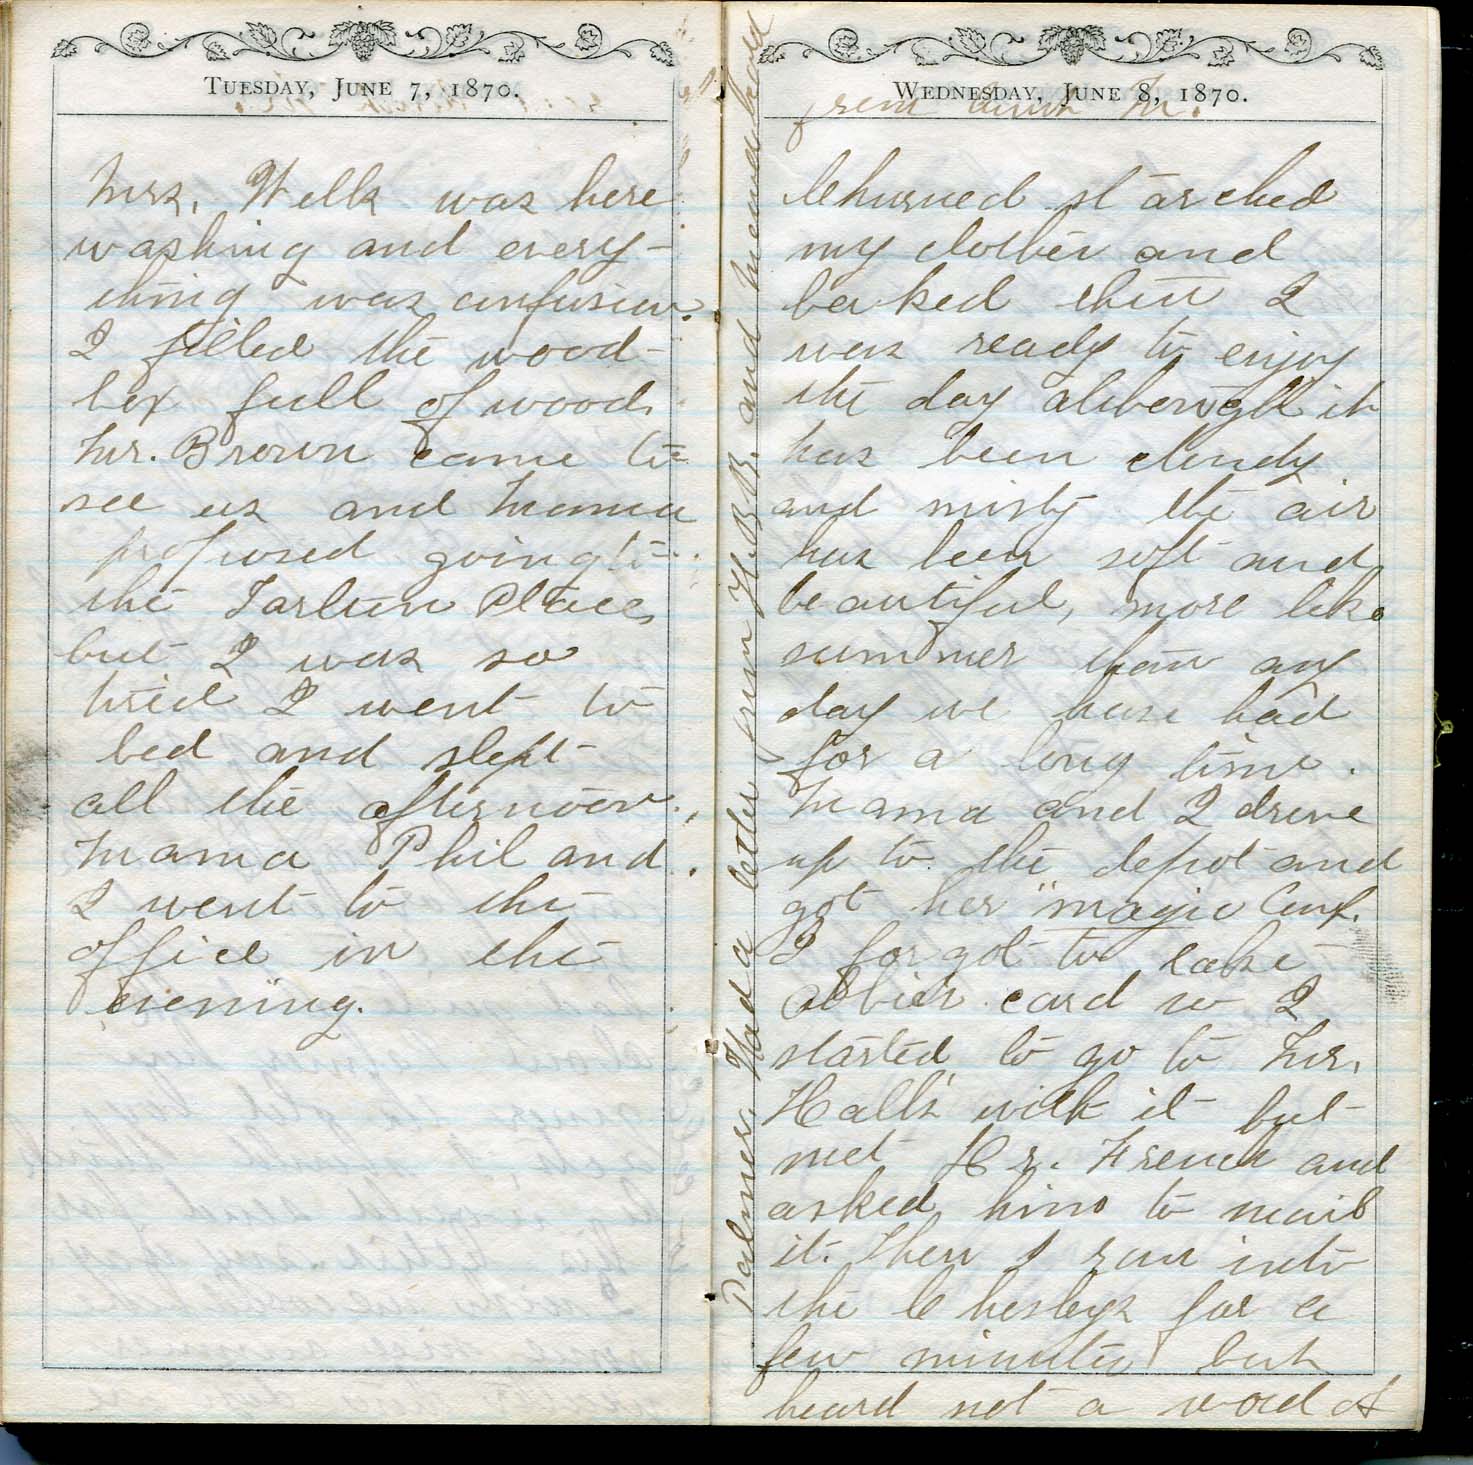 Tuesday, June 7, 1870.
Mrs. Wells was here
washing and every-
thing was confusion.
I filled the wood-
box full of wood.
Mr. Brown came to
see us and Mama
proposed going to
the Tarlton Place,
but I was so
tried I went to
bed and slept
all the afternoon.
Mama Phil and
I went to the
office in the
evening.
Wednesday, June 8, 1870.
Churned starched
my clothes and
baked then I
was ready to enjoy
the day although it
has been cloudy
and misty the air
has been soft and
beautiful, more like
summer than any
day we have had
for a long time.
Mama and I drove
up to the depot and
got her "magic Cup.
I forgot to take
Abbie's card so I
started to go to Mr.
Hall's with it but
met Hr. French and
asked him to mail
it. Then I ran into
the Chesleys for a
few minutes but
heard not a word of
Palmer. Had a letter from H.B.B. and Mama heard
from Aunt M.